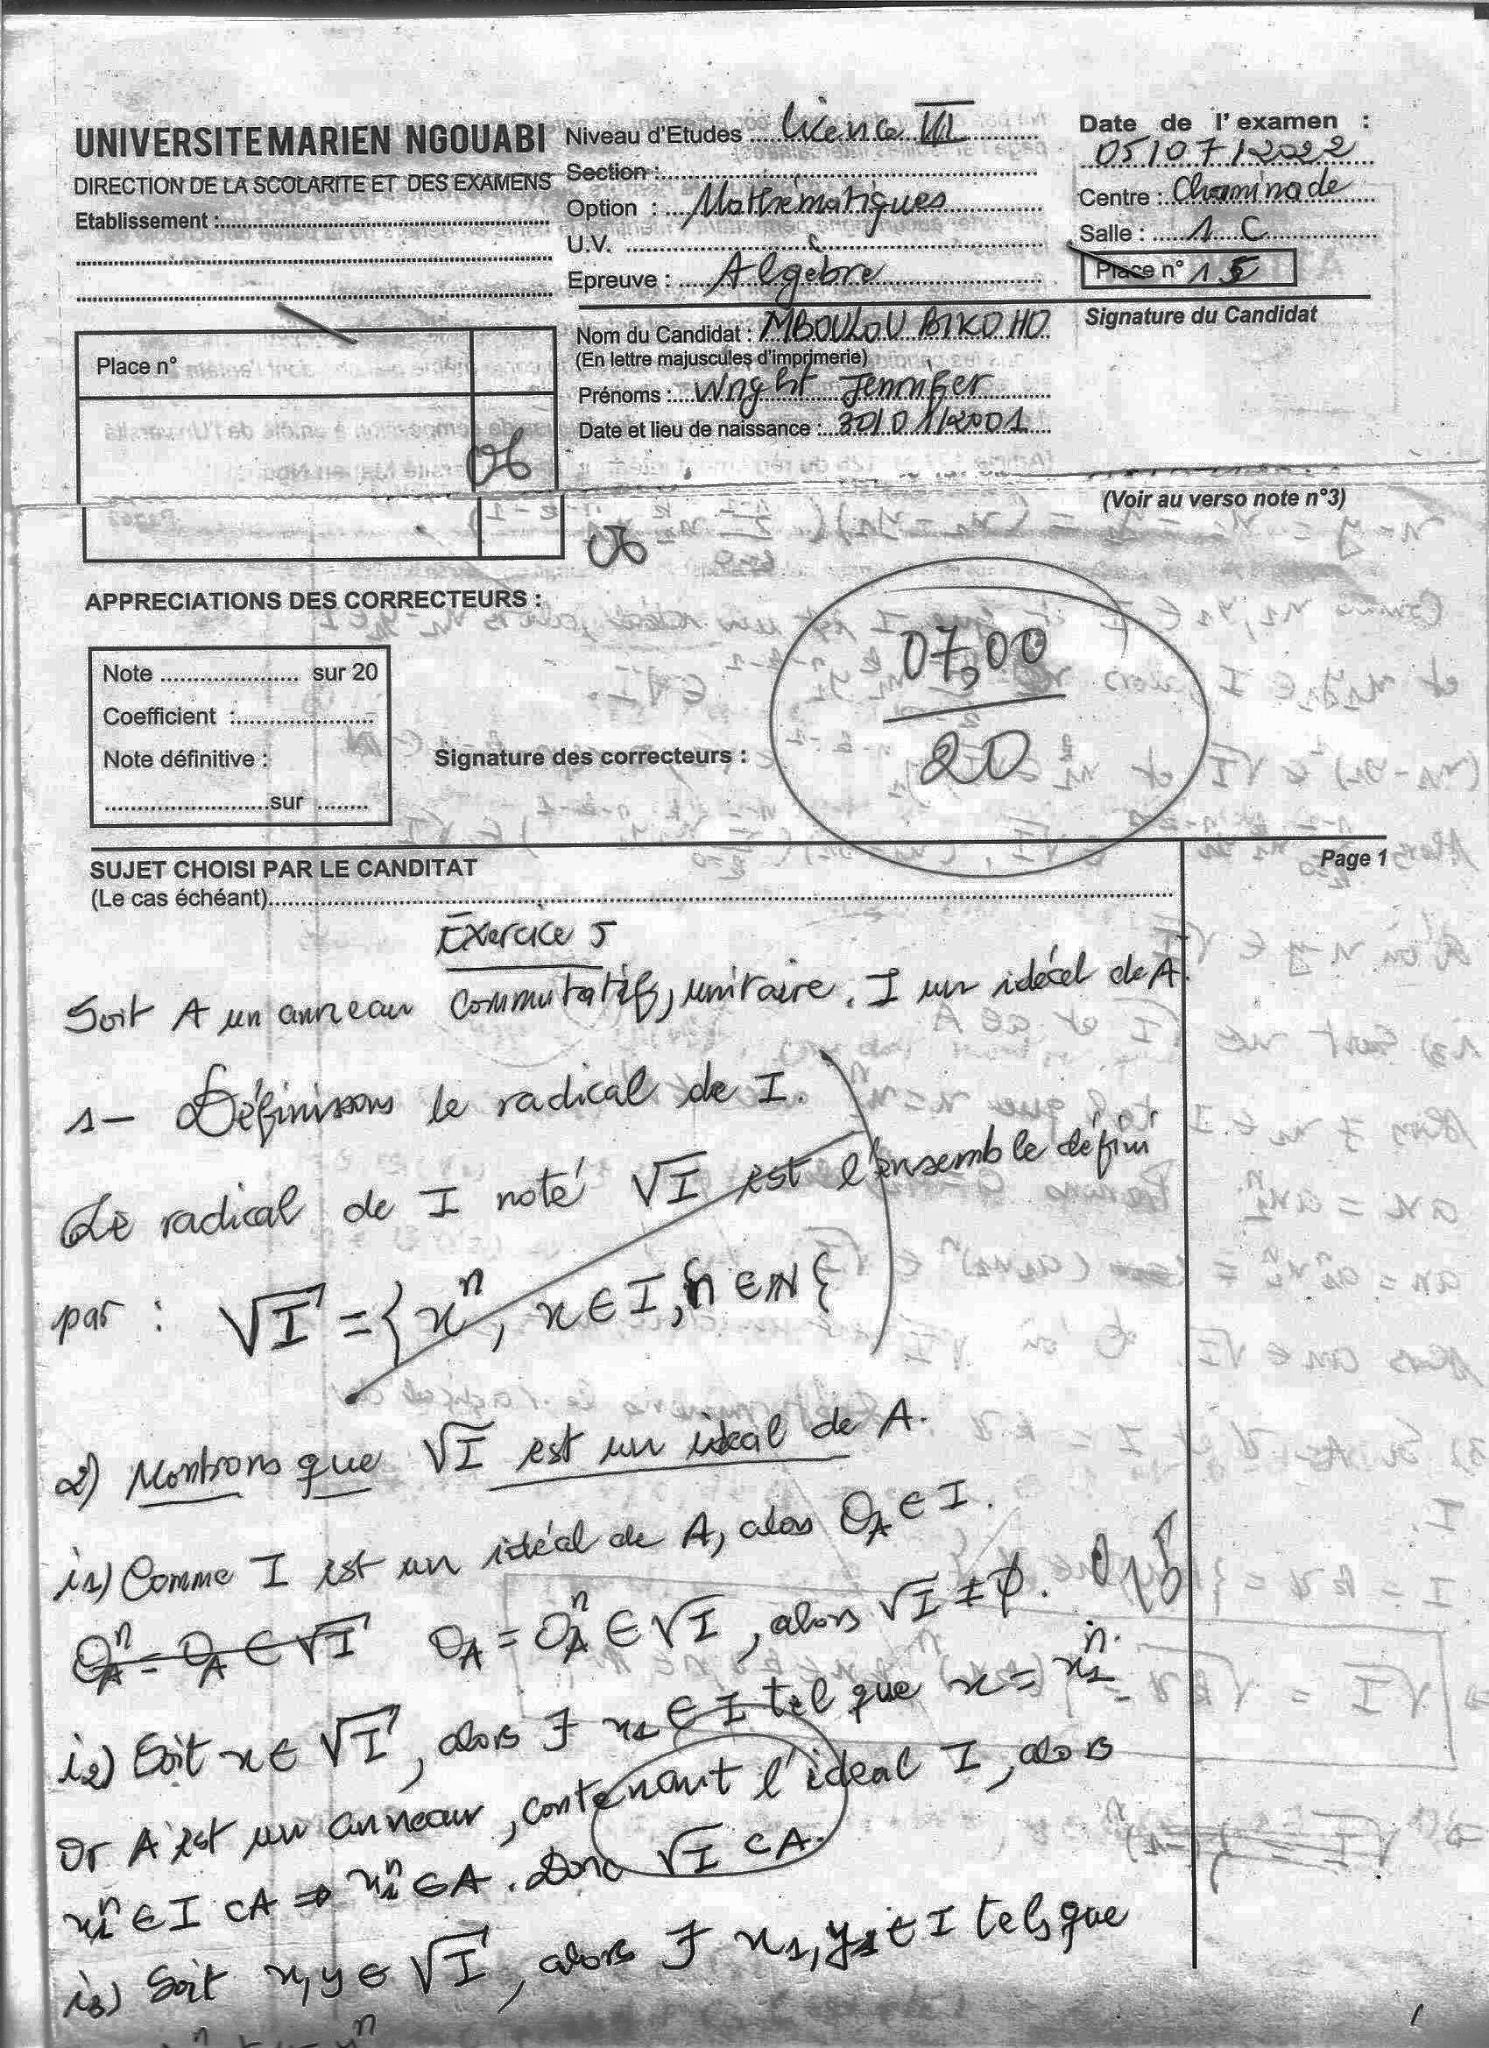 UNIVERSITE MARIEN NGOUABI
DIRECTION DE LA SCOLARITE ET DES EXAMENS
Etablissement :
Niveau d'Etudes Licence III
Section :
Option : Mathématiques
U.V.
Epreuve : Algèbre
Date de l'examen :
05/07/2022
Centre : Chaminade
Salle : 1 C
Place n° 15
Nom du Candidat : MBOULOU BIKOHO
(En lettre majuscules d'imprimerie)
Prénoms : Wright Jennifer
Date et lieu de naissance : 30/01/2001
Signature du Candidat
Place n°
06
(Voir au verso note n°3)
06
APPRECIATIONS DES CORRECTEURS :
Note sur 20
Coefficient :
Note définitive :
sur
Signature des correcteurs :
07,00
20
SUJET CHOISI PAR LE CANDITAT
(Le cas échéant)
Page 1
Exercice 5
Soit A un anneau commutatif, unitaire. I un idéal de A.
1- Définissons le radical de I.
Le radical de I noté √I est l'ensemble défini
par : √I = { x^n, x ∈ I, n ∈ ℕ }
2) Montrons que √I est un idéal de A.
i1) Comme I est un idéal de A, alors 0_A ∈ I.
0_A^n = 0_A ∈ √I 0_A = 0_A^n ∈ √I, alors √I ≠ ∅.
i2) Soit x ∈ √I, alors ∃ x_1 ∈ I tel que x = x_1^n.
Or A est un anneau, contenant l'idéal I, alors
x_1^n ∈ I ⊂ A ⇒ x_1^n ∈ A. Donc √I ⊂ A.
i3) Soit x, y ∈ √I, alors ∃ x_1, y_1 ∈ I tels que
1